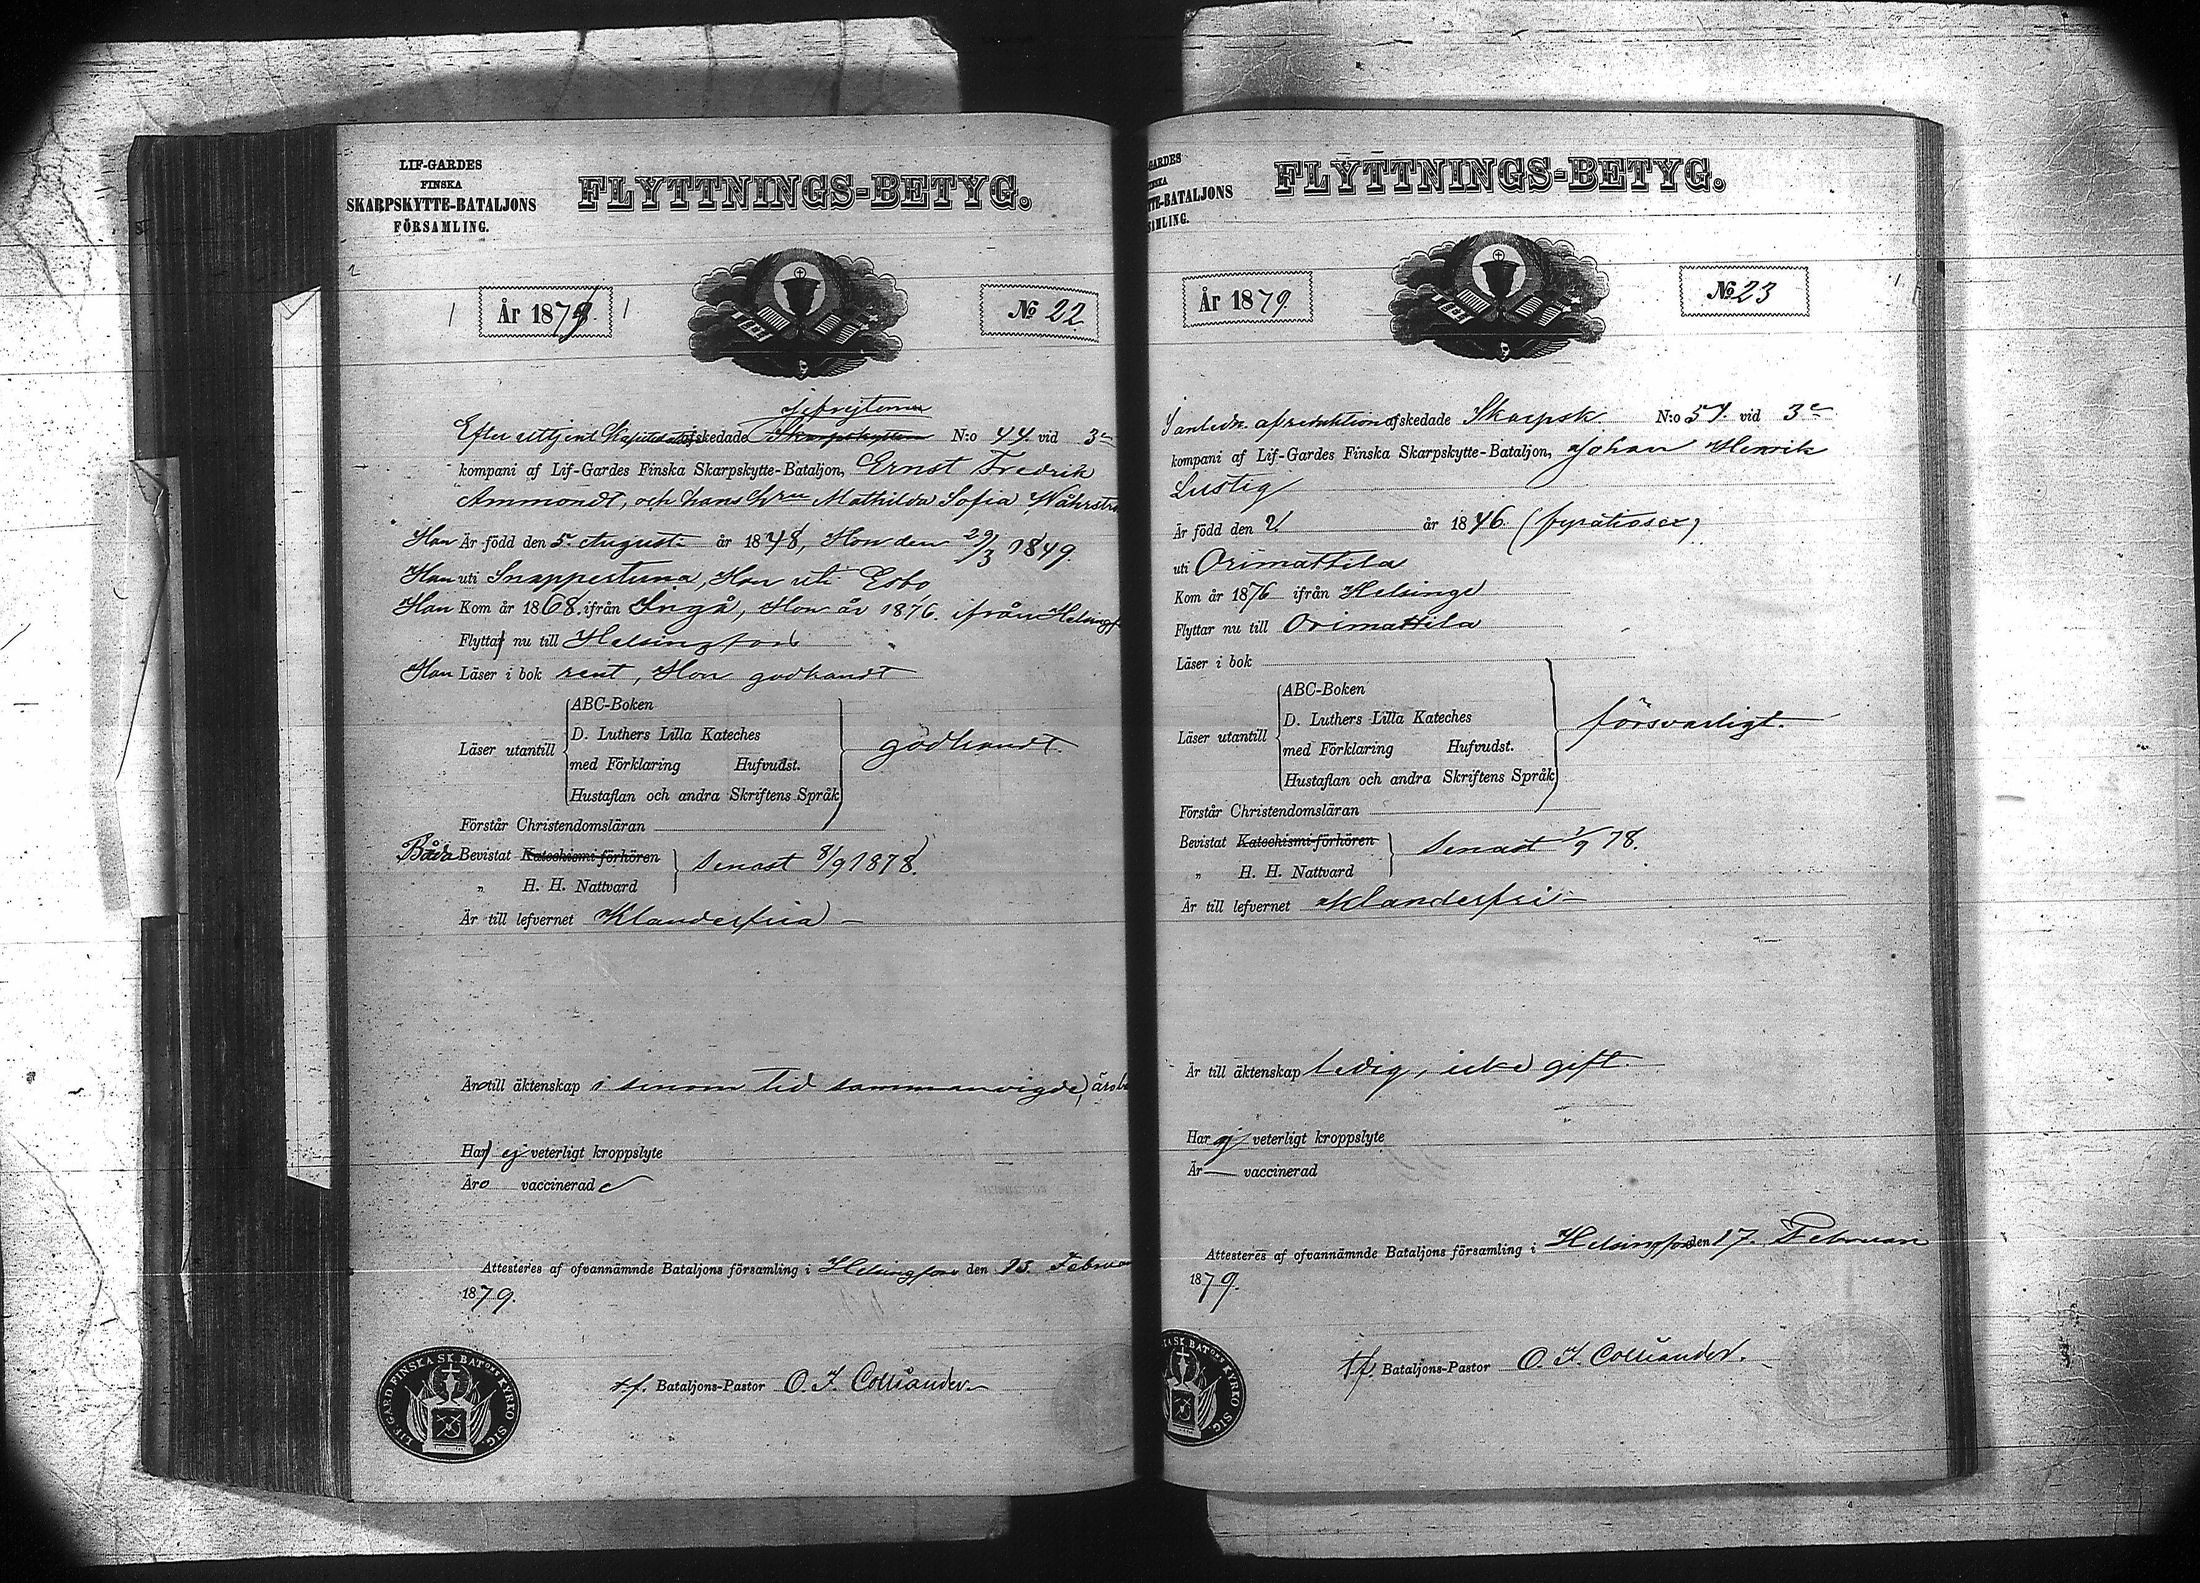 LIF-GARDES
FINSKA
SKARPSKYTTE-BATALJONS
FÖRSAMLING.
FLYTTNINGS-BETYG.
År 1879.
No 22
Gefrejtern
Efter uttjent Kapitulation afskedade Skarpskytten N:o 44. vid 3e
kompani af Lif-Gardes Finska Skarpskytte-Bataljon, Ernst Fredrik
Ammondt, och hans hru Mathilda Sofia Wåhrstr
Han Är född den 5. Augusti år 1848, Hon den 29/3 1849.
Han uti Snappertuna, Hon uti Esbo
Han Kom år 1868. ifrån Ingå, Hon år 1876. ifrån Helsingf
Flytta nu till Helsingfors
Han Läser i bok rent, Hon godkandt
Läser utantill
ABC-Boken
D. Luthers Lilla Kateches
med Förklaring Hufvudst.
Hustaflan och andra Skriftens Språk
godkandt.
Förstår Christendomsläran
Båda Bevistat Katechismi-förhören
„ H. H. Nattvard
senast 8/9 1878.
Är till lefvernet Klanderfria –
Äro till äktenskap i sinom tid sammanvigde,
Ha ej veterligt kroppslyte
Äro vaccinerade
Attesteres af ofvannämnde Bataljons församling i Helsingfors den 13. Februa
1879.
tf. Bataljons-Pastor O. I. Colliander.
LIF. GARD. FINSKA SK. BATONS KYRKO SIG.
GARDES
FINSKA
TTE-BATALJONS
SAMLING.
FLYTTNINGS-BETYG.
År 1879.
No 23
I anledn. af reduktion afskedade Skarpsk. N:o 57. vid 3e
kompani af Lif-Gardes Finska Skarpskytte-Bataljon, Johan Henrik
Lustig
Är född den 2 år 1846. (fyratiosex)
uti Orimattila
Kom år 1876 ifrån Helsinge
Flyttar nu till Orimattila
Läser i bok
Läser utantill
ABC-Boken
D. Luthers Lilla Kateches
med Förklaring Hufvudst.
Hustaflan och andra Skriftens Språk
försvarligt.
Förstår Christendomsläran
Bevistat Katechismi-förhören
„ H. H. Nattvard
senast 1/9 78.
Är till lefvernet Klanderfri –
Är till äktenskap ledig, icke gift.
Har ej veterligt kroppslyte
Är — vaccinerad
Attesteres af ofvannämnde Bataljons församling i Helsingfors den 17. Februari
1879.
tf. Bataljons-Pastor O. I. Colliander.
KA SK. BATONS KYRKO SIG.